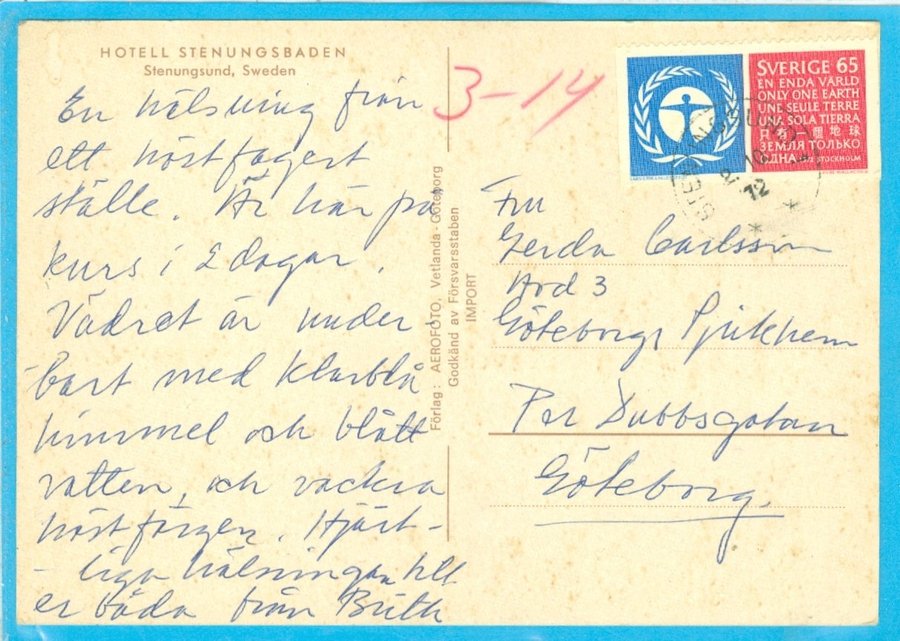 HOTELL STENUNGSBADEN
Stenungsund, Sweden
En hälsning från
ett höstfagert
ställe. Är här på
kurs i 2 dagar.
Vädret är under-
bart med klarblå
himmel och blått
vatten, och vackra
höstfärger. Hjärt-
- liga hälsningar till
er båda från Britt
Förlag: AEROFOTO, Vetlanda - Göteborg
Godkänd av Försvarsstaben
IMPORT
3-14
SVERIGE 65
EN ENDA VÄRLD
ONLY ONE EARTH
UNE SEULE TERRE
UNA SOLA TIERRA
地球
ЗЕМЛЯ ТОЛЬКО
ОДНА
STOCKHOLM
STENUNGSUND
10
72
Fru
Gerda Carlsson
Avd 3
Göteborgs Sjukhem
Per Dubbsgatan
Göteborg.